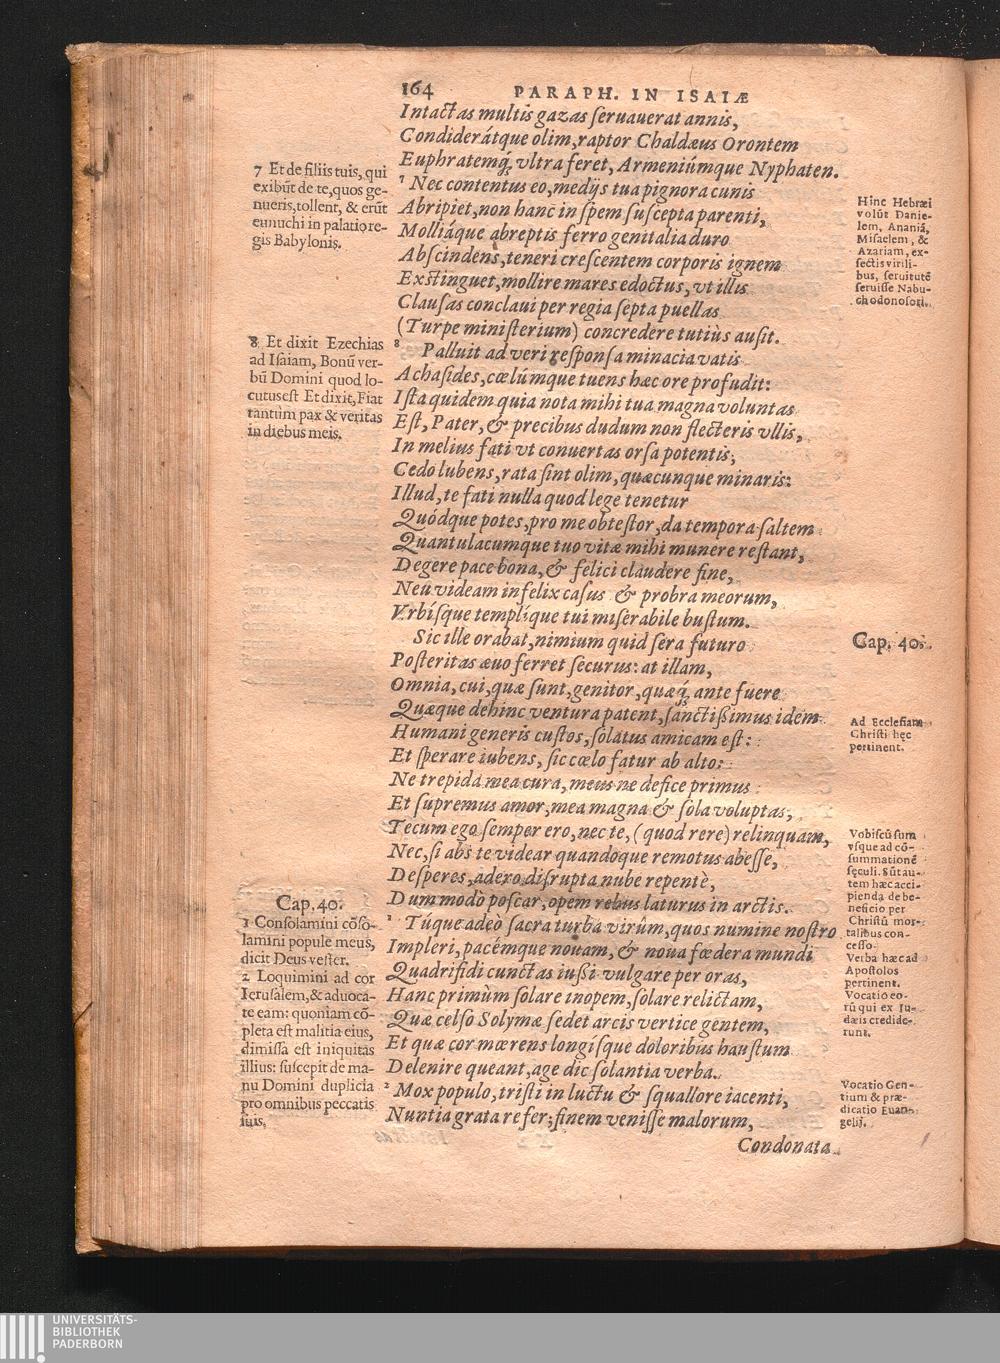 164 PARAPH. IN ISAIÆ
Intactas multis gazas ſeruauerat annis,
Condiderátque olim, raptor Chaldæus Orontem
Euphratemq́; vltra feret, Armeniúmque Nyphaten.
7 Nec contentus eo, medijs tua pignora cunis
Abripiet, non hanc in ſpem ſuſcepta parenti,
Molliáque abreptis ferro genitalia duro
Abſcindens, teneri creſcentem corporis ignem
Exſtinguet, mollire mares edoctus, vt illis
Clauſas conclaui per regia ſepta puellas
(Turpe miniſterium) concredere tutiùs auſit.
8 Palluit ad veri reſponſa minacia vatis
Achaſides, cœlúmque tuens hæc ore profudit:
Iſta quidem quia nota mihi tua magna voluntas
Eſt, Pater, & precibus dudum non flecteris vllis,
In melius fati vt conuertas orſa potentis,
Cedo lubens, rata ſint olim, quæcunque minaris:
Illud, te fati nulla quod lege tenetur
Quódque potes, pro me obteſtor, da tempora ſaltem
Quantulacumque tuo vitæ mihi munere reſtant,
Degere pace bona, & felici claudere fine,
Neu videam infelix caſus & probra meorum,
Vrbíſque templíque tui miſerabile buſtum.
Sic ille orabat, nimium quid ſera futuro
Poſteritas æuo ferret ſecurus: at illam,
Omnia, cui, quæ ſunt, genitor, quæq́; ante fuere
Quæque dehinc ventura patent, ſanctißimus idem
Humani generis cuſtos, ſolatus amicam eſt:
Et ſperare iubens, ſic cœlo fatur ab alto:
Ne trepida mea cura, meus ne defice primus
Et ſupremus amor, mea magna & ſola voluptas,
Tecum ego ſemper ero, nec te, (quod rere) relinquam,
Nec, ſi abs te videar quandoque remotus abeſſe,
Deſperes, adero diſrupta nube repentè,
Dummodò poſcar, opem rebus laturus in arctis.
1 Túque adeò ſacra turba virûm, quos numine noſtro
Impleri, pacémque nouam, & noua fœdera mundi
Quadrifidi cunctas iußi vulgare per oras,
Hanc primùm ſolare inopem, ſolare relictam,
Quæ celſo Solymæ ſedet arcis vertice gentem,
Et quæ cor mœrens longíſque doloribus hauſtum
Delenire queant, age dic ſolantia verba.
2 Mox populo, triſti in luctu & ſquallore iacenti,
Nuntia grata refer, finem veniſſe malorum,
Condonata
7 Et de filiis tuis, qui
exibũt de te, quos ge-
nueris, tollent, & erũt
eunuchi in palatio re-
gis Babylonis.
8 Et dixit Ezechias
ad Iſaiam, Bonũ ver-
bũ Domini quod lo-
cutus eſt Et dixit, Fiat
tantùm pax & veritas
in diebus meis.
Cap. 40.
1 Conſolamini cõſo-
lamini popule meus,
dicit Deus veſter.
2 Loquimini ad cor
Ieruſalem, & aduoca-
te eam: quoniam cõ-
pleta eſt malitia eius,
dimiſſa eſt iniquitas
illius: ſuſcepit de ma-
nu Domini duplicia
pro omnibus peccatis
ſuis.
Hinc Hebræi
volũt Danie-
lem, Ananiã,
Miſaelem, &
Azariam, ex-
ſectis virili-
bus, ſeruitutẽ
ſeruiſſe Nabu-
chodonoſori.
Cap. 40.
Ad Eccleſiam
Chriſti hęc
pertinent.
Vobiſcũ ſum
vſque ad cõ-
ſummationẽ
ſęculi. Sũt au-
tem hæc acci-
pienda de be-
neficio per
Chriſtũ mor-
talibus con-
ceſſo.
Verba hæc ad
Apoſtolos
pertinent.
Vocatio eo-
rũ qui ex Iu-
dæis credide-
runt.
Vocatio Gen-
tium & præ-
dicatio Euan-
gelij.
UNIVERSITÄTS-
BIBLIOTHEK
PADERBORN